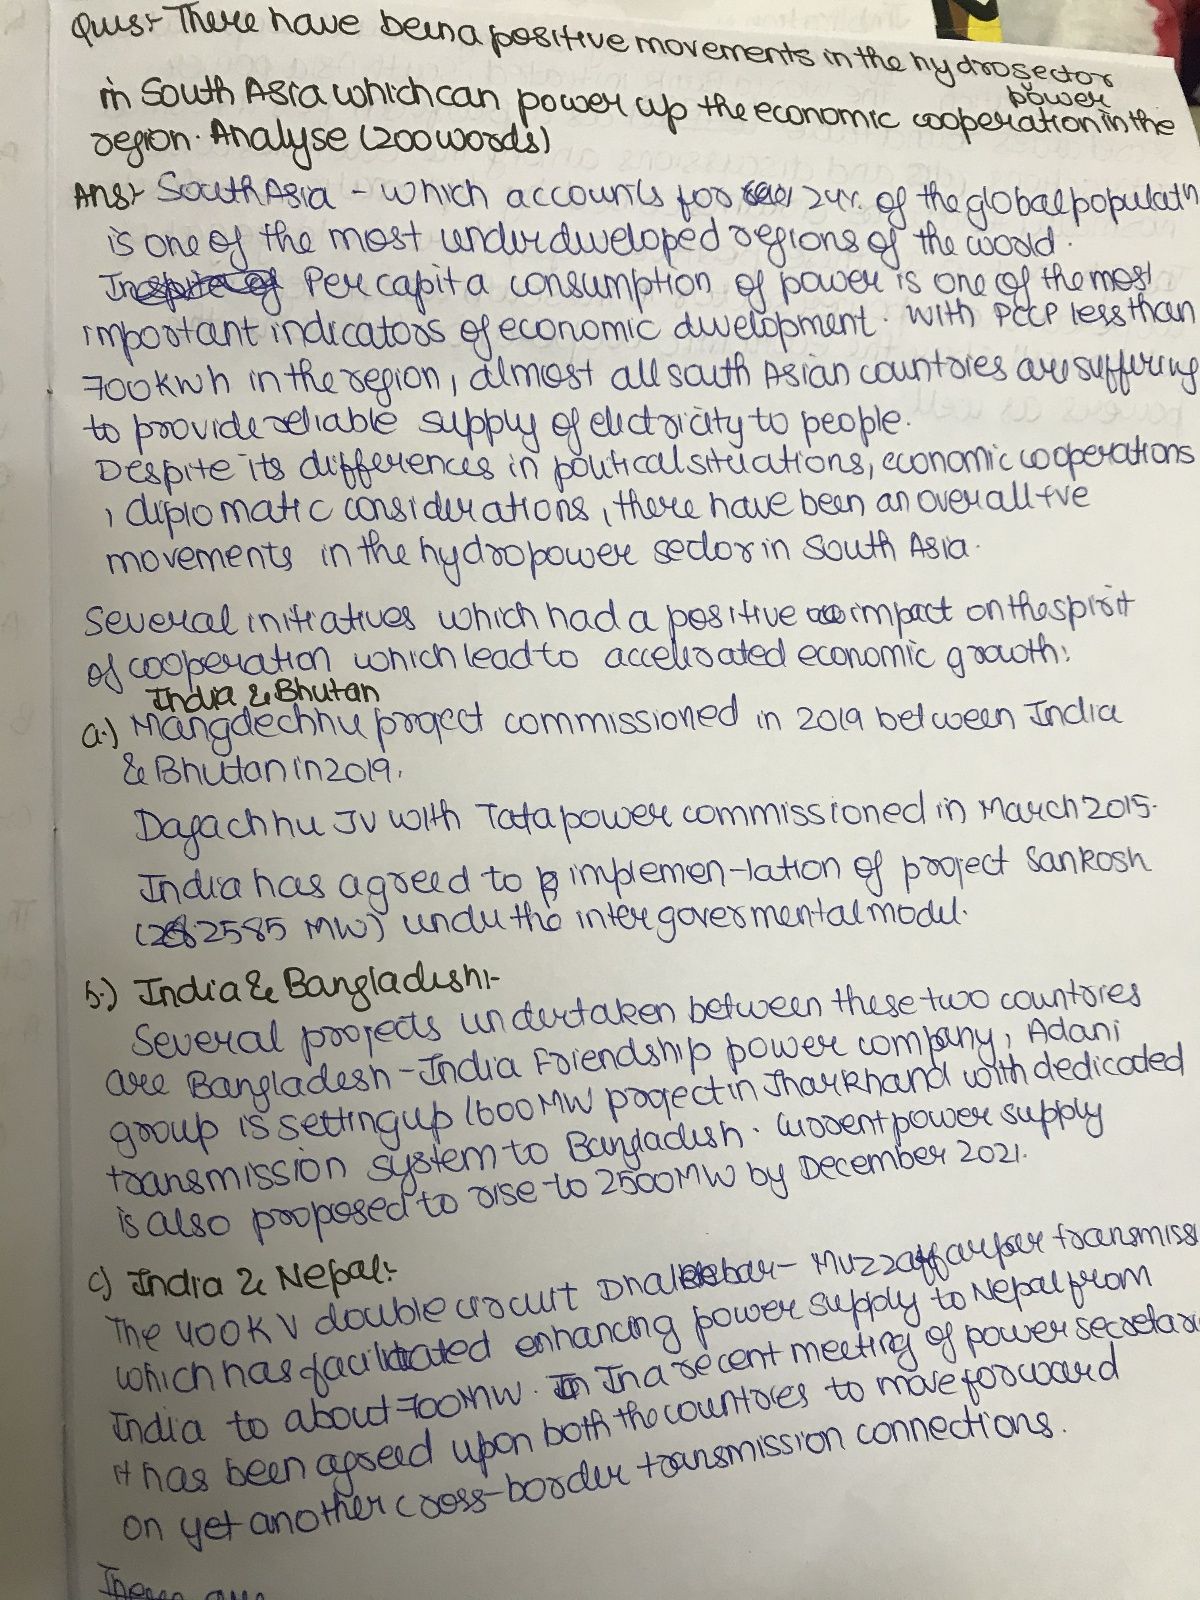 Ques:- There have been a positive movements in the hydro sector
power
in South Asia which can power up the economic cooperation in the
region. Analyse (200 words)
Ans:- South Asia - which accounts for 24% of the global populatn
is one of the most underdeveloped regions of the world.
Inspite of Per capita consumption of power is one of the most
important indicators of economic development. With PCCP less than
700 KWh in the region, almost all south Asian countries are suffering
to provide reliable supply of electricity to people.
Despite its differences in political situations, economic cooperations
, diplomatic considerations, there have been an overall +ve
movements in the hydropower sector in South Asia.
Several initiatives which had a positive impact on the spirit
of cooperation which lead to accelerated economic growth:
India & Bhutan
a.) Mangdechhu project commissioned in 2019 between India
& Bhutan in 2019.
Dagachhu JV with Tata power commissioned in March 2015.
India has agreed to implemen-tation of project Sankosh
(2585 MW) under the inter govermental model.
b.) India & Bangladesh:-
Several projects undertaken between these two countries
are Bangladesh-India Friendship power company, Adani
group is setting up 1600 MW project in Jharkhand with dedicated
transmission system to Bangladesh. Current power supply
is also proposed to rise to 2500 MW by December 2021.
c) India & Nepal:-
The 400 KV double circuit Dhalkebar- Muzzaffarpur transmissi
which has facilitated enhancing power supply to Nepal from
India to about 700 MW. In a recent meeting of power secretari
it has been agreed upon both the countries to move forward
on yet another cross-border transmission connections.